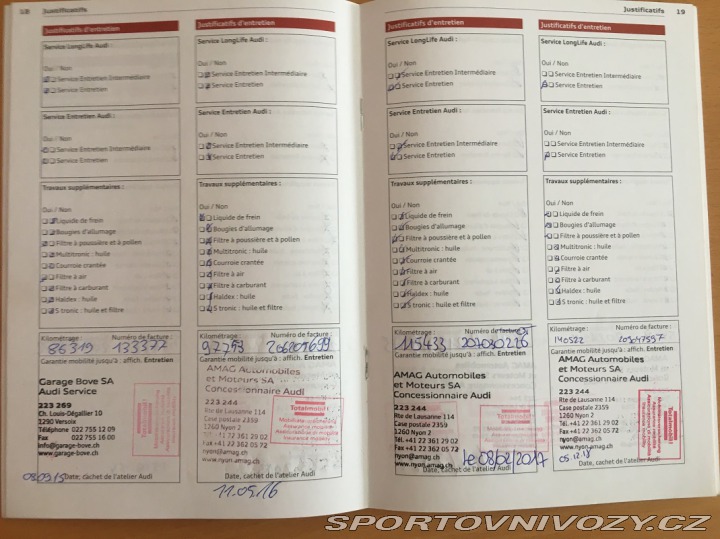 18 Justificatifs
Justificatifs d'entretien
Service LongLife Audi :
Oui / Non
Service Entretien Intermédiaire
Service Entretien
Service Entretien Audi :
Oui / Non
Service Entretien Intermédiaire
Service Entretien
Travaux supplémentaires :
Oui / Non
Liquide de frein
Bougies d'allumage
Filtre à poussière et à pollen
Multitronic : huile
Courroie crantée
Filtre à air
Filtre à carburant
Haldex : huile
S tronic : huile et filtre
Kilométrage : Numéro de facture :
86319 133377
Garantie mobilité jusqu'à : affich. Entretien
Garage Bove SA
Audi Service
223 269
Ch. Louis-Dégallier 10
1290 Versoix
Téléphone 022 755 12 09
Fax 022 755 16 00
info@garage-bove.ch
www.garage-bove.ch
Date, cachet de l'atelier Audi
Justificatifs d'entretien
Service LongLife Audi :
Oui / Non
Service Entretien Intermédiaire
Service Entretien
Service Entretien Audi :
Oui / Non
Service Entretien Intermédiaire
Service Entretien
Travaux supplémentaires :
Oui / Non
Liquide de frein
Bougies d'allumage
Filtre à poussière et à pollen
Multitronic : huile
Courroie crantée
Filtre à air
Filtre à carburant
Haldex : huile
S tronic : huile et filtre
Kilométrage : Numéro de facture :
Garantie mobilité jusqu'à : affich. Entretien
AMAG Automobiles
et Moteurs SA
Concessionnaire Audi
223 244
Rte de Lausanne 114
Case postale 2359
1260 Nyon 2
Tél. +41 22 361 29 02
Fax +41 22 362 05 72
nyon@amag.ch
www.nyon.amag.ch
Totalmobil!
Date, cachet de l'atelier Audi
11.05.16
Justificatifs 19
Justificatifs d'entretien
Service LongLife Audi :
Oui / Non
Service Entretien Intermédiaire
Service Entretien
Service Entretien Audi :
Oui / Non
Service Entretien Intermédiaire
Service Entretien
Travaux supplémentaires :
Oui / Non
Liquide de frein
Bougies d'allumage
Filtre à poussière et à pollen
Multitronic : huile
Courroie crantée
Filtre à air
Filtre à carburant
Haldex : huile
S tronic : huile et filtre
Kilométrage : Numéro de facture :
115433
Garantie mobilité jusqu'à : affich. Entretien
AMAG Automobiles
et Moteurs SA
Concessionnaire Audi
223 244
Rte de Lausanne 114
Case postale 2359
1260 Nyon 2
Tél. +41 22 361 29 02
Fax +41 22 362 05 72
nyon@amag.ch
www.nyon.amag.ch
le 08/02/2017
Date, cachet de l'atelier Audi
Justificatifs d'entretien
Service LongLife Audi :
Oui / Non
Service Entretien Intermédiaire
Service Entretien
Service Entretien Audi :
Oui / Non
Service Entretien Intermédiaire
Service Entretien
Travaux supplémentaires :
Oui / Non
Liquide de frein
Bougies d'allumage
Filtre à poussière et à pollen
Multitronic : huile
Courroie crantée
Filtre à air
Filtre à carburant
Haldex : huile
S tronic : huile et filtre
Kilométrage : Numéro de facture :
140522
Garantie mobilité jusqu'à : affich. Entretien
AMAG Automobiles
et Moteurs SA
Concessionnaire Audi
223 244
Rte de Lausanne 114
Case postale 2359
1260 Nyon 2
Tél. +41 22 361 29 02
Fax +41 22 362 05 72
nyon@amag.ch
www.nyon.amag.ch
Date, cachet de l'atelier Audi
SPORTOVNIVOZY.CZ